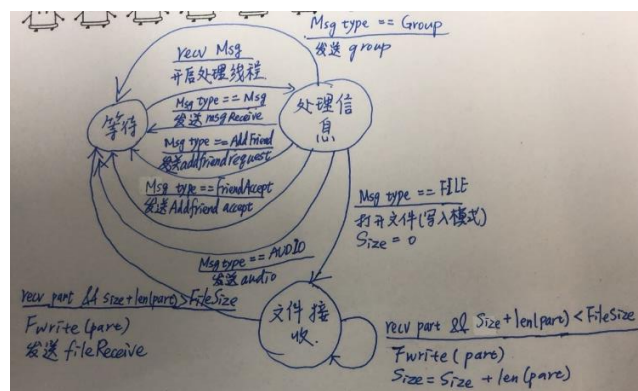 Msg type == Group
发送 group
recv Msg
开启处理线程.
Msg type == Msg
发送 msgReceive
Msg type == AddFriend
发送addfriendrequest
Msg type == FriendAccept
发送Addfriend accept
等待
处理信
息
Msg type == FILE
打开文件(写入模式)
Size = 0
Msg type == AUDIO
发送audio
recv part && size+len(part)>FileSize
Fwrite(part)
发送 fileReceive
文件接
收.
recv part && Size+len(part)<FileSize
Fwrite(part)
Size = Size + len(part)